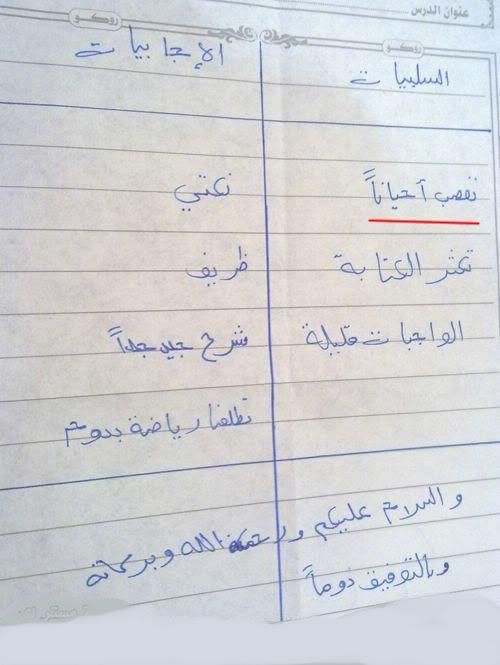 عنوان الدرس
روكو روكو
السلبيات الإجابيات
تعصب أحياناً نكتي
تكثر الكتابة ظريف
الواجبات قليلة شرح جيد جداً
تطلعنا رياضة بدوم
والسلام عليكم ورحمة الله وبركاتة
وبالتوفيق دوماً